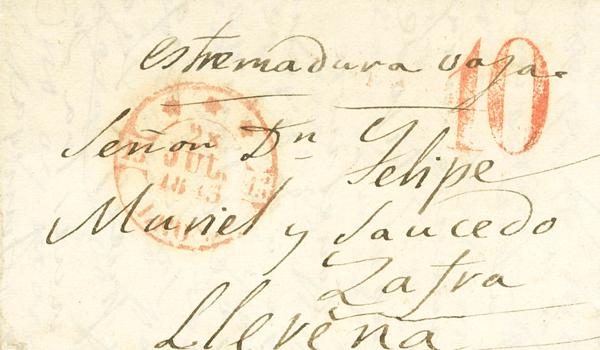 estremadura vaja.
10
Señor Dn Felipe
28
JUL.
Muriel y Saucedo
Zafra
Llerena